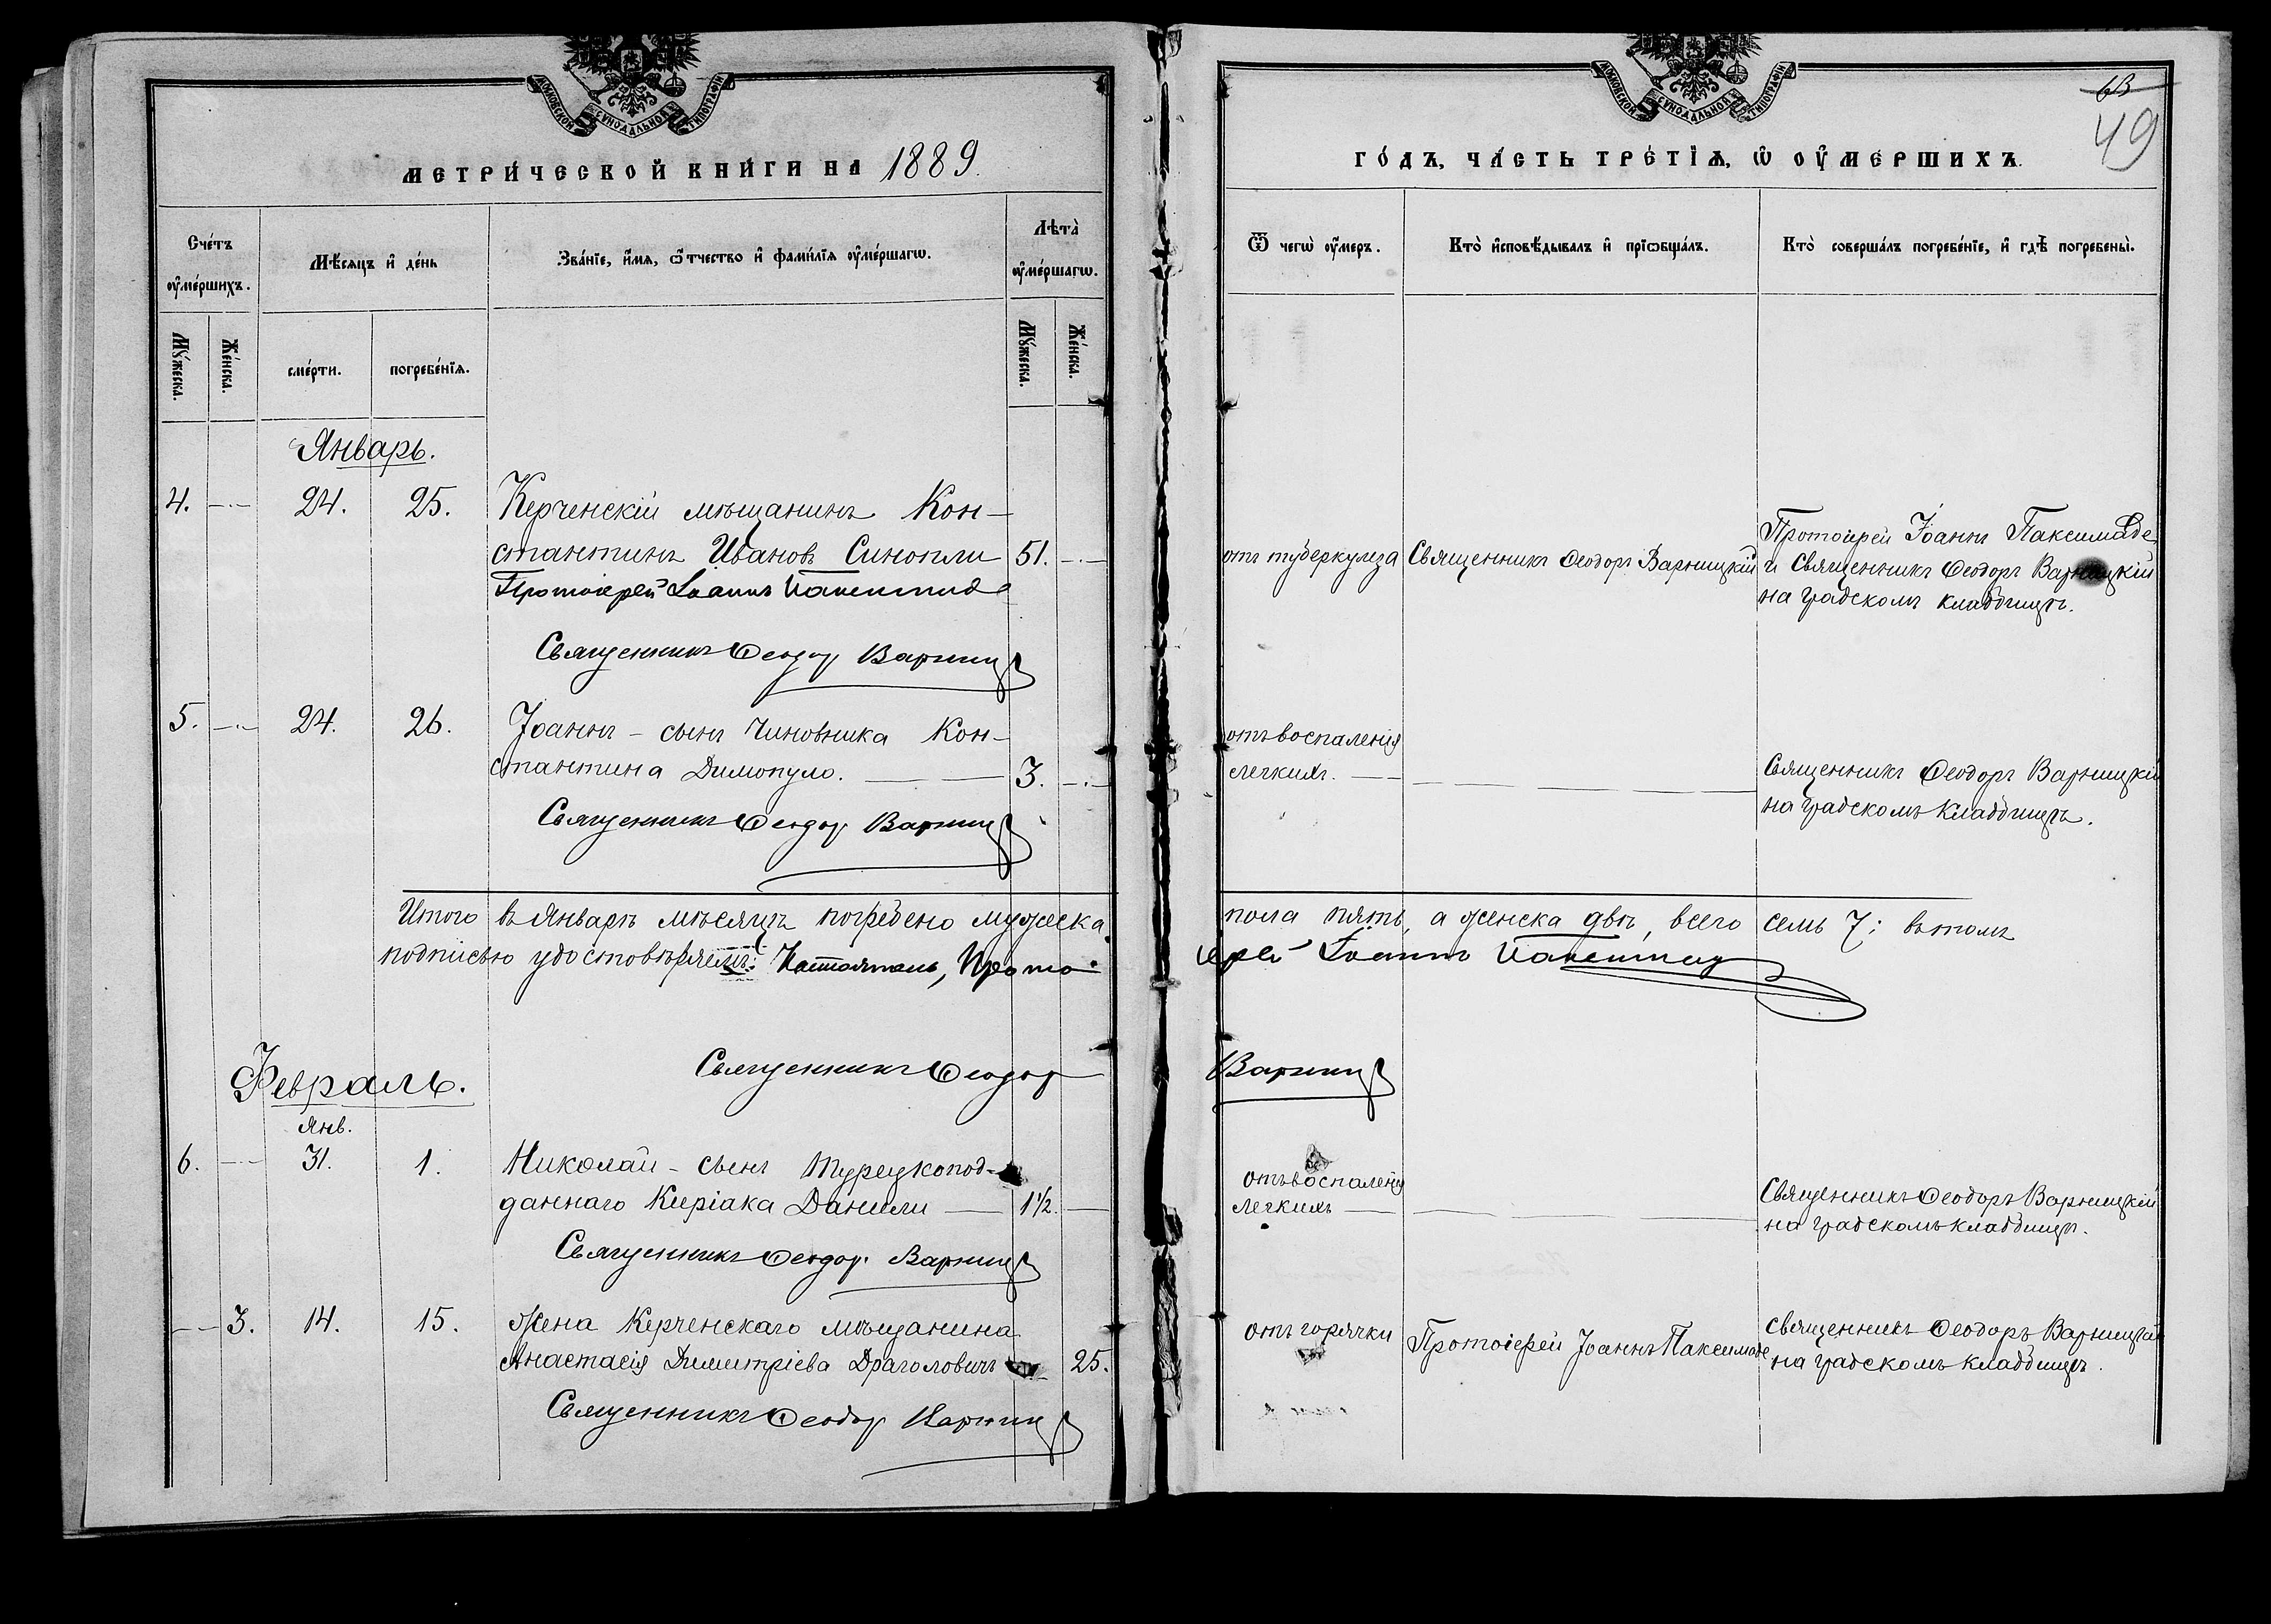 МОСКОВСКОЙ СѴНОДАЛЬНОЙ ТИПОГРАФІИ
МЕТРИ́ЧЕСКОЙ КНИ́ГИ НА 1889.
Сче́тъ ᲂу҆ме́ршихъ.
Мѣ́сяцъ и҆ де́нь
Зва́нїе, и҆́мя, ѻ҆́тчество и҆ фами́лїя ᲂу҆ме́ршагѡ.
Лѣта̀ ᲂу҆ме́ршагѡ.
Мꙋ́жеска.
Же́нска.
сме́рти.
погребе́нїѧ.
Мꙋ́жеска.
Же́нска.
Январь.
4. 24. 25. Керченскій мѣщанинъ Кон-
стантинъ Ивановъ Синопли 51.
Протоіерей Іоаннъ Паксимаде
Священникъ Ѳеодоръ Варницкій
5. 24. 26. Іоаннъ - сынъ чиновника Кон-
стантина Димопуло. 3.
Священникъ Ѳеодоръ Варницкій
Итого въ Январѣ мѣсяцѣ погребено мужеска
подписью удостовѣряемъ: Настоятель, Прото
Февраль.
Священникъ Ѳеодоръ
Янв.
6. 31. 1. Николай - сынъ турецкопод-
даннаго Киріака Данили 1½.
Священникъ Ѳеодоръ Варницкій
3. 14. 15. Жена Керченскаго мѣщанина
Анастасія Димитріева Драголовичъ 25.
Священникъ Ѳеодоръ Варницкій
МОСКОВСКОЙ СѴНОДАЛЬНОЙ ТИПОГРАФІИ
63
49
ГО́ДЪ, ЧА́СТЬ ТРЕ́ТІѦ, Ѡ҆ ОУ҆МЕ́РШИХЪ.
Ѿ чегѡ̀ ᲂу҆́меръ.
Кто̀ и҆сповѣ́дывалъ и҆ прїѡбща́лъ.
Кто̀ соверша́лъ погребе́нїе, и҆ гдѣ̀ погребены̀.
отъ туберкулеза Священникъ Ѳеодоръ Варницкій
Протоіерей Іоаннъ Паксимаде
и Священникъ Ѳеодоръ Варницкій
на градскомъ кладбищѣ.
отъ воспаленія
легкихъ.
Священникъ Ѳеодоръ Варницкій
на градскомъ кладбищѣ.
пола пять, а женска двѣ, всего семь 7; въ томъ
іерей Іоаннъ Паксимаде
Варницкій
отъ воспаленія
легкихъ
Священникъ Ѳеодоръ Варницкій
на градскомъ кладбищѣ.
отъ горячки Протоіерей Іоаннъ Паксимаде
Священникъ Ѳеодоръ Варницкій
на градскомъ кладбищѣ.